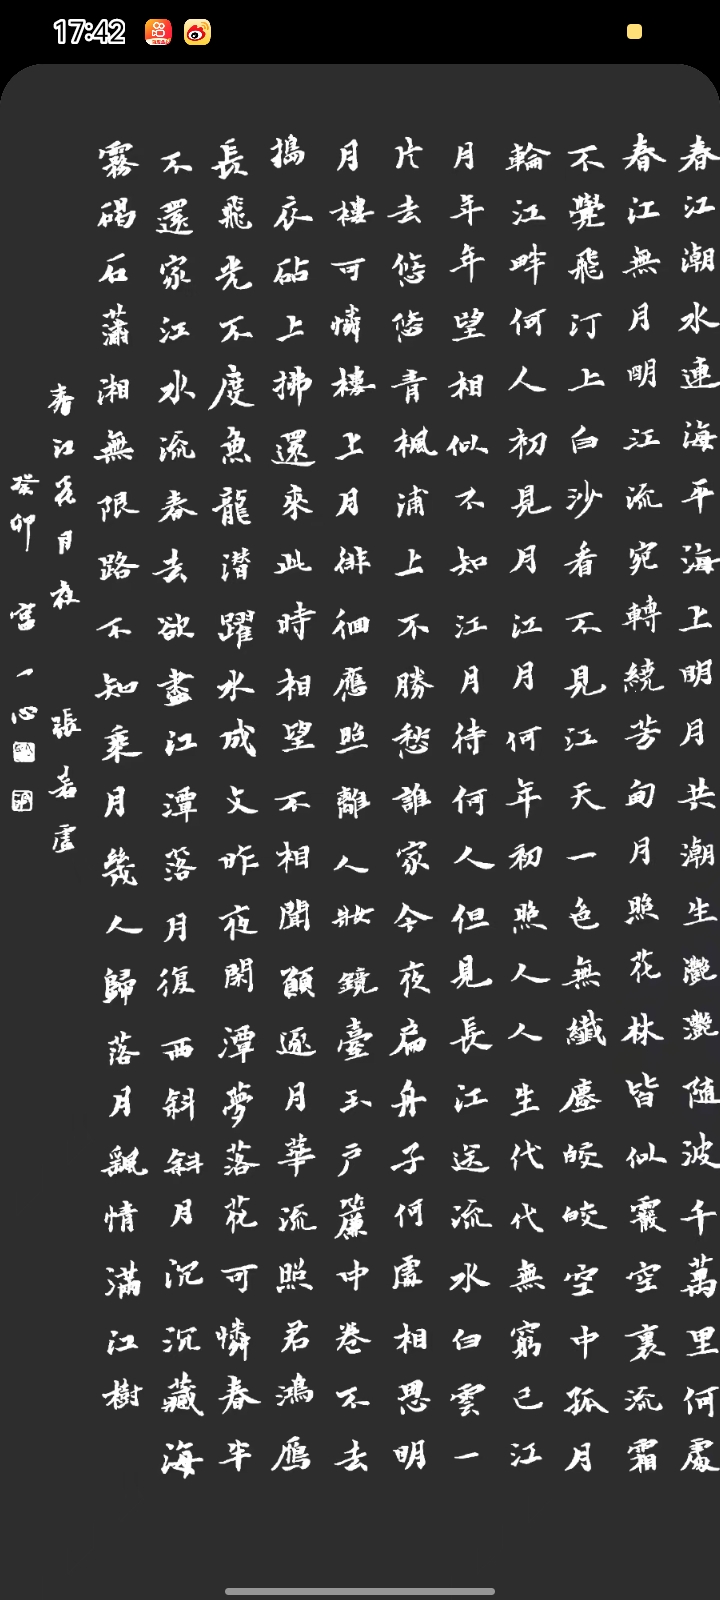 17:42
春江潮水連海平海上明月共潮生灩灩随波千萬里何處
春江無月明江流宛轉繞芳甸月照花林皆似霰空裏流霜
不覺飛汀上白沙看不見江天一色無纖塵皎皎空中孤月
輪江畔何人初見月江月何年初照人人生代代無窮已江
月年年望相似不知江月待何人但見長江送流水白雲一
片去悠悠青楓浦上不勝愁誰家今夜扁舟子何處相思明
月樓可憐樓上月徘徊應照離人妝鏡臺玉戶簾中卷不去
搗衣砧上拂還來此時相望不相聞願逐月華流照君鴻鴈
長飛光不度魚龍潛躍水成文昨夜閑潭夢落花可憐春半
不還家江水流春去欲盡江潭落月復西斜斜月沉沉藏海
霧碣石瀟湘無限路不知乘月幾人歸落月搖情滿江樹
春江花月夜 張若虛
癸卯 宮一心